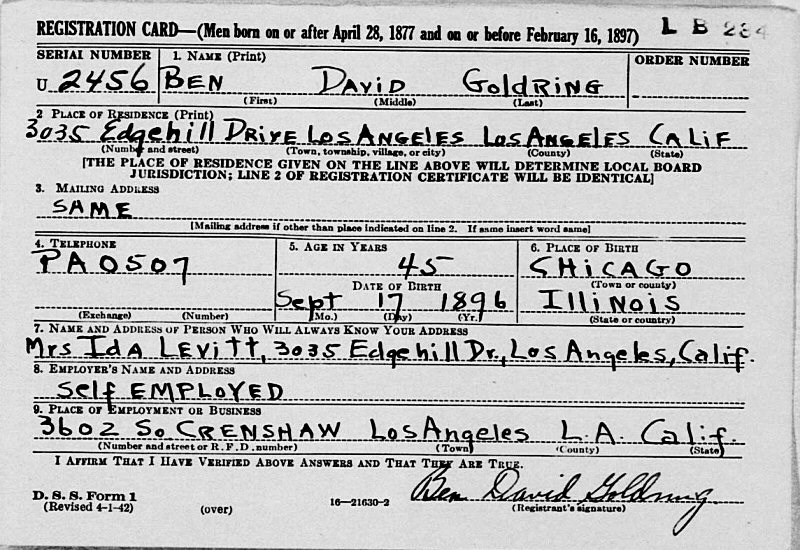 REGISTRATION CARD—(Men born on or after April 28, 1877 and on or before February 16, 1897) L B 234
SERIAL NUMBER 1. NAME (Print) ORDER NUMBER
U 2456 BEN DAVID GOLDRING
(First) (Middle) (Last)
2 PLACE OF RESIDENCE (Print)
3035 Edgehill DRIVE LOS ANGELES LOS ANGELES CALIF
(Number and street) (Town, township, village, or city) (County) (State)
[THE PLACE OF RESIDENCE GIVEN ON THE LINE ABOVE WILL DETERMINE LOCAL BOARD
JURISDICTION; LINE 2 OF REGISTRATION CERTIFICATE WILL BE IDENTICAL]
3. MAILING ADDRESS
SAME
[Mailing address if other than place indicated on line 2. If same insert word same]
4. TELEPHONE 5. AGE IN YEARS 6. PLACE OF BIRTH
PA 0507 45 CHICAGO
DATE OF BIRTH (Town or county)
Sept 17 1896 ILLINOIS
(Exchange) (Number) (Mo.) (Day) (Yr.) (State or country)
7. NAME AND ADDRESS OF PERSON WHO WILL ALWAYS KNOW YOUR ADDRESS
Mrs IDA LEVITT, 3035 Edgehill Dr., Los Angeles, Calif.
8. EMPLOYER'S NAME AND ADDRESS
Self EMPLOYED
9. PLACE OF EMPLOYMENT OR BUSINESS
3602 So CRENSHAW Los Angeles L.A. Calif.
(Number and street or R. F. D. number) (Town) (County) (State)
I AFFIRM THAT I HAVE VERIFIED ABOVE ANSWERS AND THAT THEY ARE TRUE.
Ben David Goldring
D. S. S. Form 1
(Revised 4-1-42) (over) 16—21630-2 (Registrant's signature)